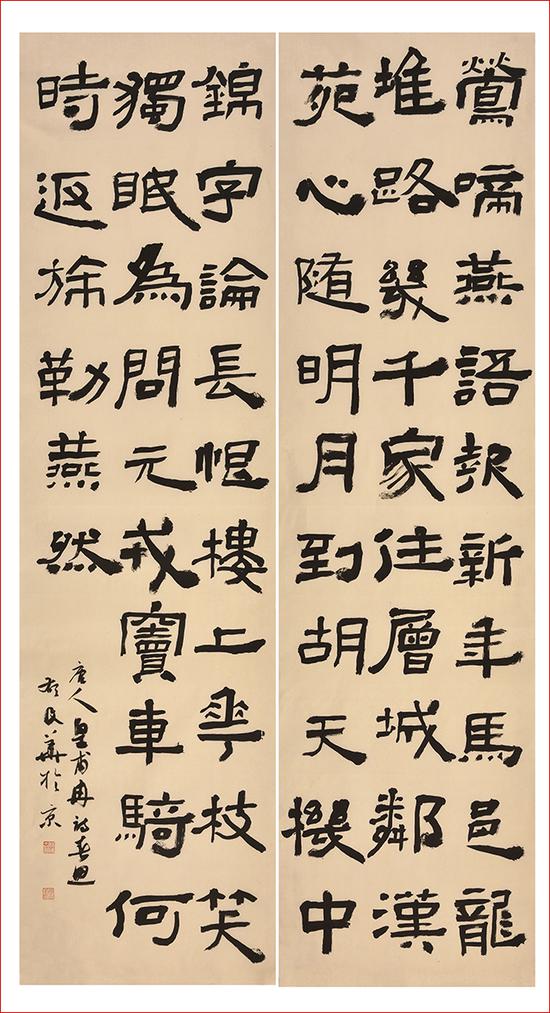 鶯啼燕語報新年馬邑龍
堆路幾千家住層城鄰漢
苑心随明月到胡天機中
錦字論長恨樓上華枝笑
獨眠為問元戎竇車騎何
時返旆勒燕然
唐人皇甫冉诗春思
華於京